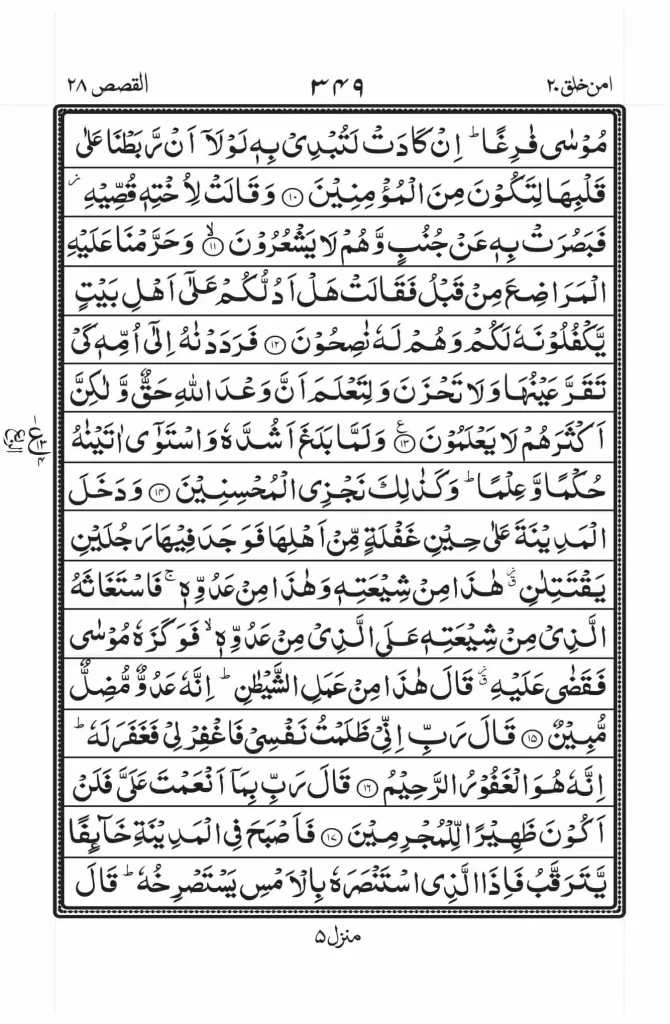 امن خلق ۲۰ ۳۴۹ القصص ۲۸
مُوۡسٰی فٰرِغًا ؕ اِنۡ کَادَتۡ لَتُبۡدِیۡ بِہٖ لَوۡلَاۤ اَنۡ رَّبَطۡنَا عَلٰی
قَلۡبِہَا لِتَکُوۡنَ مِنَ الۡمُؤۡمِنِیۡنَ ﴿۱۰﴾ وَ قَالَتۡ لِاُخۡتِہٖ قُصِّیۡہِ ۫
فَبَصُرَتۡ بِہٖ عَنۡ جُنُبٍ وَّ ہُمۡ لَا یَشۡعُرُوۡنَ ﴿ۙ۱۱﴾ وَ حَرَّمۡنَا عَلَیۡہِ
الۡمَرَاضِعَ مِنۡ قَبۡلُ فَقَالَتۡ ہَلۡ اَدُلُّکُمۡ عَلٰۤی اَہۡلِ بَیۡتٍ
یَّکۡفُلُوۡنَہٗ لَکُمۡ وَ ہُمۡ لَہٗ نٰصِحُوۡنَ ﴿۱۲﴾ فَرَدَدۡنٰہُ اِلٰۤی اُمِّہٖ کَیۡ
تَقَرَّ عَیۡنُہَا وَ لَا تَحۡزَنَ وَ لِتَعۡلَمَ اَنَّ وَعۡدَ اللّٰہِ حَقٌّ وَّ لٰکِنَّ
اَکۡثَرَہُمۡ لَا یَعۡلَمُوۡنَ ﴿۱۳﴾ ع وَ لَمَّا بَلَغَ اَشُدَّہٗ وَ اسۡتَوٰۤی اٰتَیۡنٰہُ
حُکۡمًا وَّ عِلۡمًا ؕ وَ کَذٰلِکَ نَجۡزِی الۡمُحۡسِنِیۡنَ ﴿۱۴﴾ وَ دَخَلَ
الۡمَدِیۡنَۃَ عَلٰی حِیۡنِ غَفۡلَۃٍ مِّنۡ اَہۡلِہَا فَوَجَدَ فِیۡہَا رَجُلَیۡنِ
یَقۡتَتِلٰنِ ٭۫ ہٰذَا مِنۡ شِیۡعَتِہٖ وَ ہٰذَا مِنۡ عَدُوِّہٖ ۚ فَاسۡتَغَاثَہُ
الَّذِیۡ مِنۡ شِیۡعَتِہٖ عَلَی الَّذِیۡ مِنۡ عَدُوِّہٖ ۙ فَوَکَزَہٗ مُوۡسٰی
فَقَضٰی عَلَیۡہِ ٭۫ قَالَ ہٰذَا مِنۡ عَمَلِ الشَّیۡطٰنِ ؕ اِنَّہٗ عَدُوٌّ مُّضِلٌّ
مُّبِیۡنٌ ﴿۱۵﴾ قَالَ رَبِّ اِنِّیۡ ظَلَمۡتُ نَفۡسِیۡ فَاغۡفِرۡ لِیۡ فَغَفَرَ لَہٗ ؕ
اِنَّہٗ ہُوَ الۡغَفُوۡرُ الرَّحِیۡمُ ﴿۱۶﴾ قَالَ رَبِّ بِمَاۤ اَنۡعَمۡتَ عَلَیَّ فَلَنۡ
اَکُوۡنَ ظَہِیۡرًا لِّلۡمُجۡرِمِیۡنَ ﴿۱۷﴾ فَاَصۡبَحَ فِی الۡمَدِیۡنَۃِ خَآئِفًا
یَّتَرَقَّبُ فَاِذَا الَّذِی اسۡتَنۡصَرَہٗ بِالۡاَمۡسِ یَسۡتَصۡرِخُہٗ ؕ قَالَ
منزل ۵